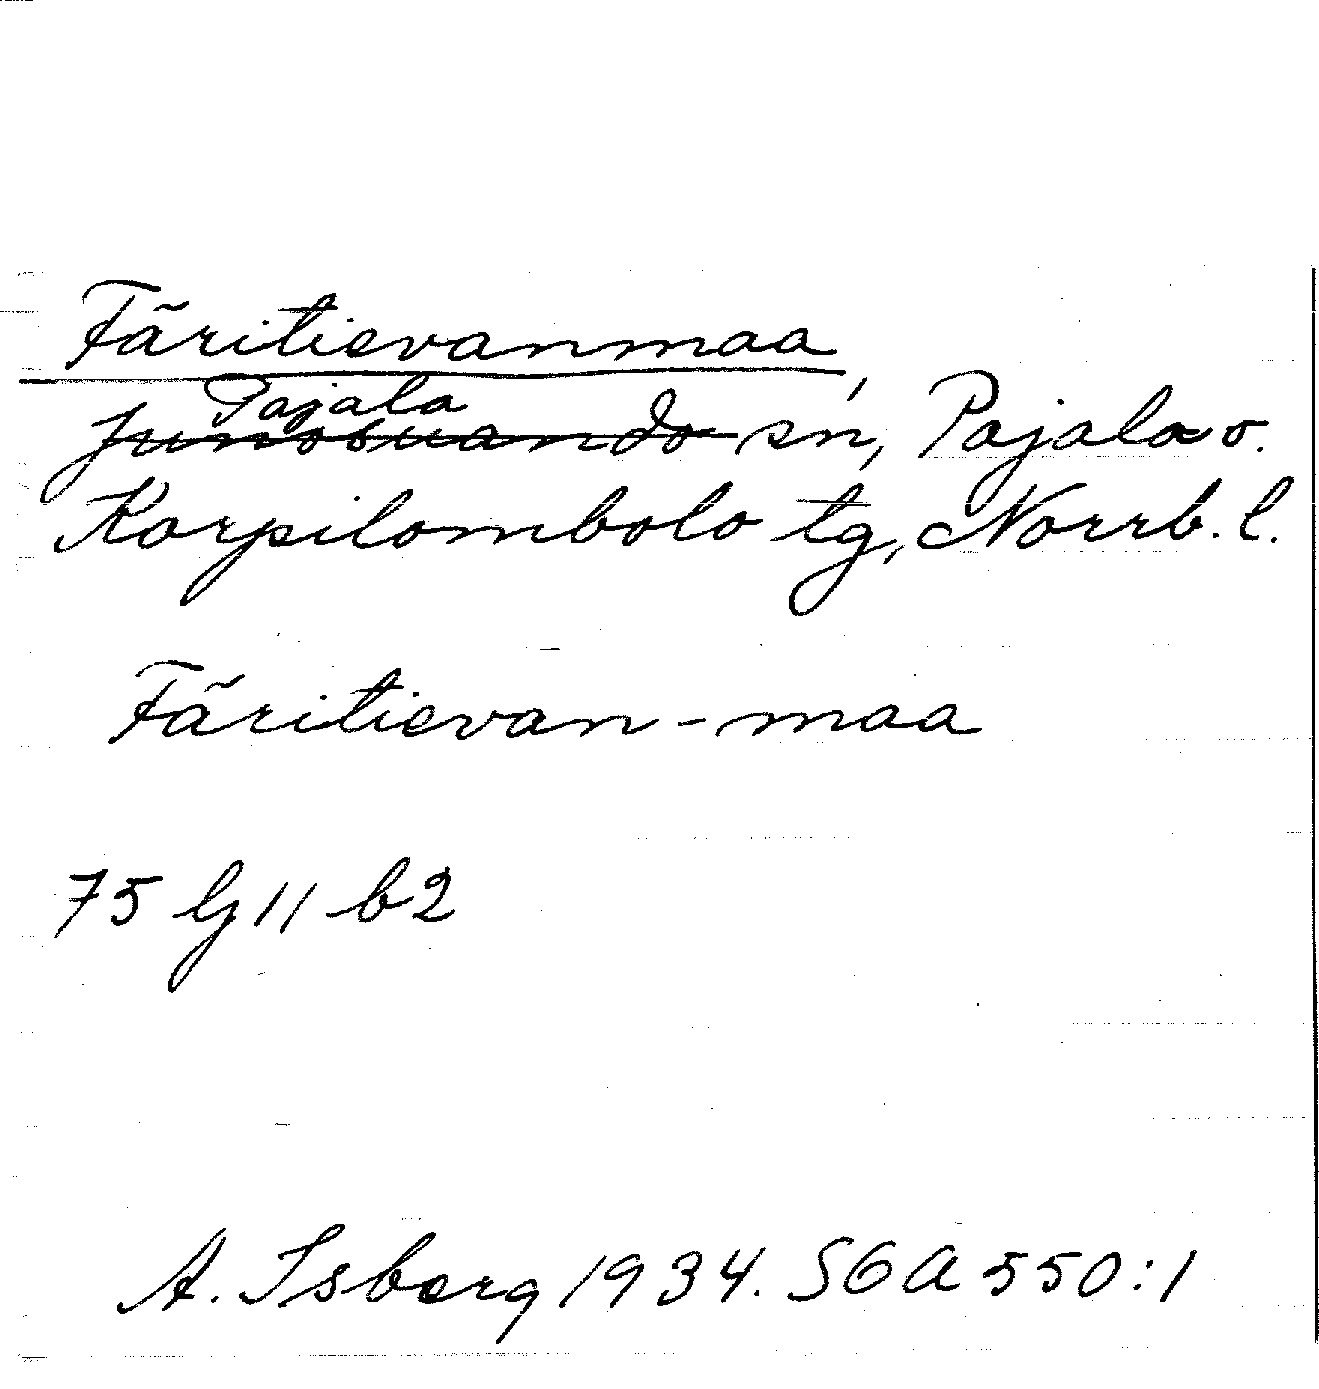 Färitievanmaa,
Pajala
Junosuando sn, Pajala o.
Korpilombolo tg, Norrb. l.
Färitievan-maa
75 G 11 b2
A. Isberg 1934. SOA 550:1